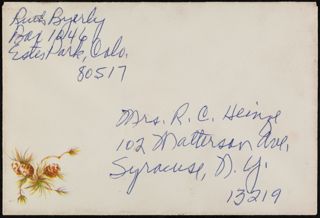 Ruth Byerly
Box 1246
Estes Park, Colo.
80517
Mrs. R. C. Heinze
102 Matterson Ave.
Syracuse, N. Y.
13219